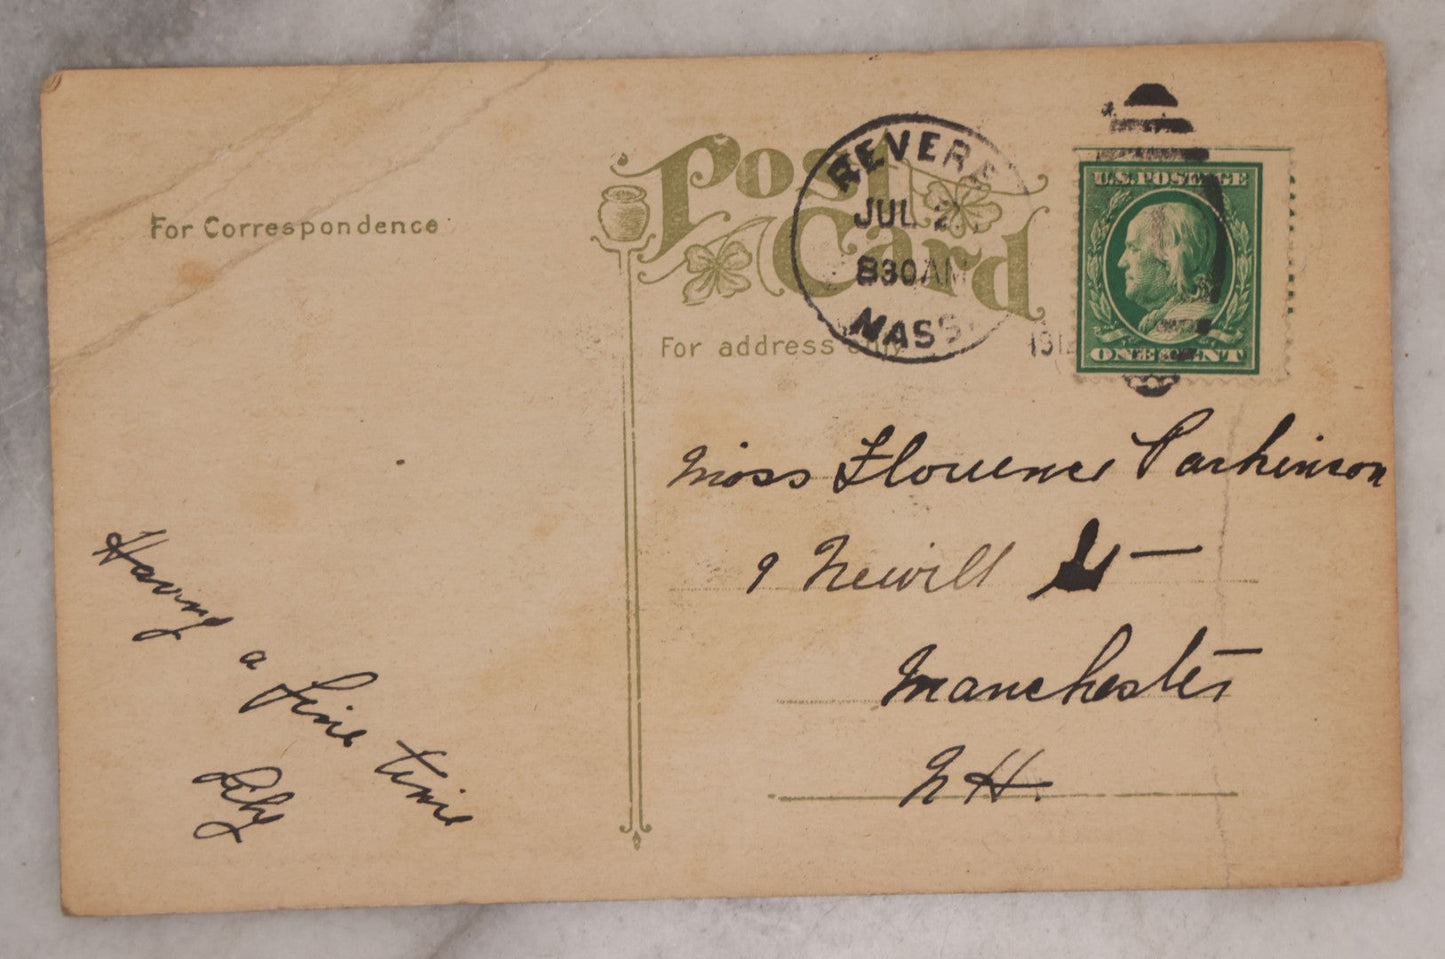 Post Card
For Correspondence
For address only
REVERE
JUL 2
830AM
MASS.
191
U.S. POSTAGE
ONE CENT
Miss Florence Parkinson
9 Newill St
Manchester
N H.
Having
a
fine time